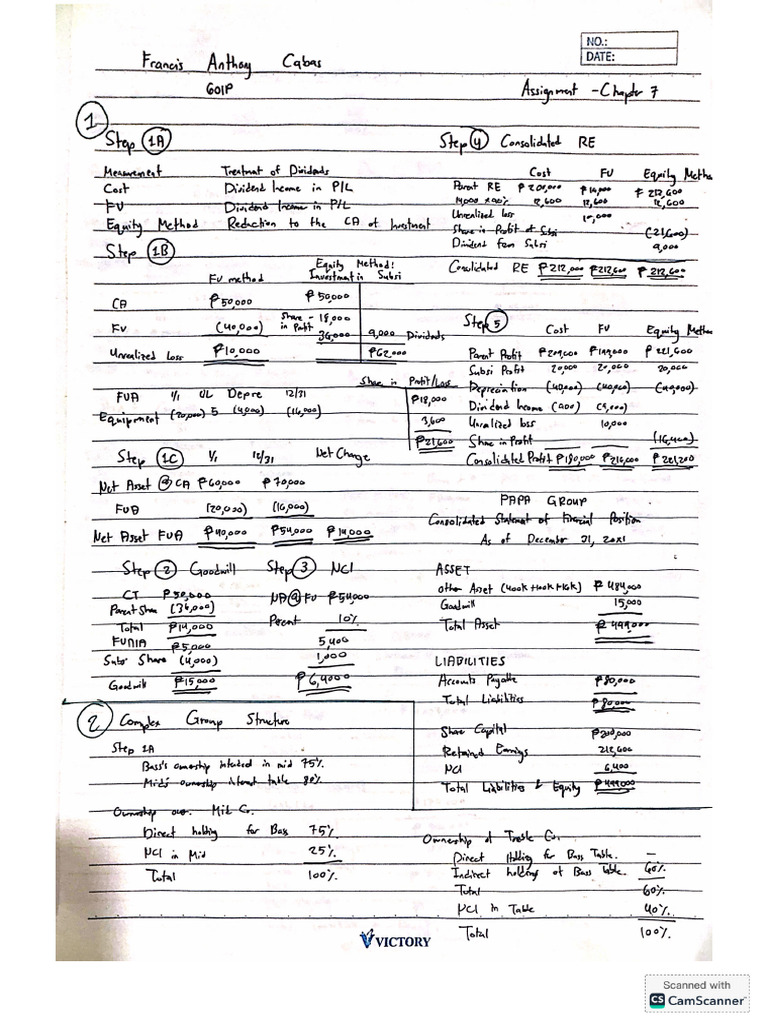 NO.:
DATE:
Francis Anthony Cabas
601P
Assignment - Chapter 7
1
Step 1A
Measurement Treatment of Dividends
Cost Dividend Income in P/L
FV Dividend Income in P/L
Equity Method Reduction to the CA of Investment
Step 1B
FV method
Equity Method:
Investment in Subsi
CA ₱50,000 ₱50,000
FV (40,000) Share in Profit - 18,000
36,000 9,000 Dividends
Unrealized Loss ₱10,000 ₱62,000
Share in Profit/Loss
₱18,000
3,600
₱21,600
FVA 1/1 UL Depre 12/31
Equipment (20,000) 5 (4,000) (16,000)
Step 1C 1/1 12/31 Net Change
Net Asset @ CA ₱60,000 ₱70,000
FVA (20,000) (16,000)
Net Asset FVA ₱40,000 ₱54,000 ₱14,000
Step 2 Goodwill
CT ₱50,000
Parent Share (36,000)
Total ₱14,000
FVNIA ₱5,000
Subs' Share (4,000)
Goodwill ₱15,000
Step 3 NCI
NA @ FV ₱54,000
Percent 10%
5,400
1,000
₱6,4000
Step 4 Consolidated RE
Cost FV Equity Metho
Parent RE ₱200,000 ₱190,000 ₱212,600
14,000 x 90% 12,600 12,600 12,600
Unrealized loss 10,000
Share in Profit of Subsi (21,600)
Dividend from Subsi 9,000
Consolidated RE ₱212,000 ₱212,600 ₱212,600
Step 5
Cost FV Equity Method
Parent Profit ₱209,000 ₱199,000 ₱221,600
Subsi Profit 20,000 20,000 20,000
Depreciation (40,000) (40,000) (40,000)
Dividend Income (900) (9,000)
Unrealized loss 10,000
Share in Profit (16,400)
Consolidated Profit ₱180,000 ₱216,000
PAPA GROUP
Consolidated Statement of Financial Position
As of December 31, 20x1
ASSET
Other Asset (400k+100k+16k) ₱484,000
Goodwill 15,000
Total Asset ₱499,000
LIABILITIES
Accounts Payable ₱80,000
Total Liabilities ₱80,000
Share Capital ₱200,000
Retained Earnings 212,600
NCI 6,400
Total Liabilities & Equity ₱499,000
2 Complex Group Structure
Step 1A
Bass's ownership interest in mid 75%
Mid's ownership interest table 80%
Ownership over Mid Co.
Direct holding for Bass 75%
NCI in Mid 25%
Total 100%
Ownership of Treble Co.
Direct Holding for Bass Table. —
Indirect holding of Bass table. 60%
Total 60%
NCI in Table 40%
Total 100%
VICTORY
Scanned with
CS CamScanner